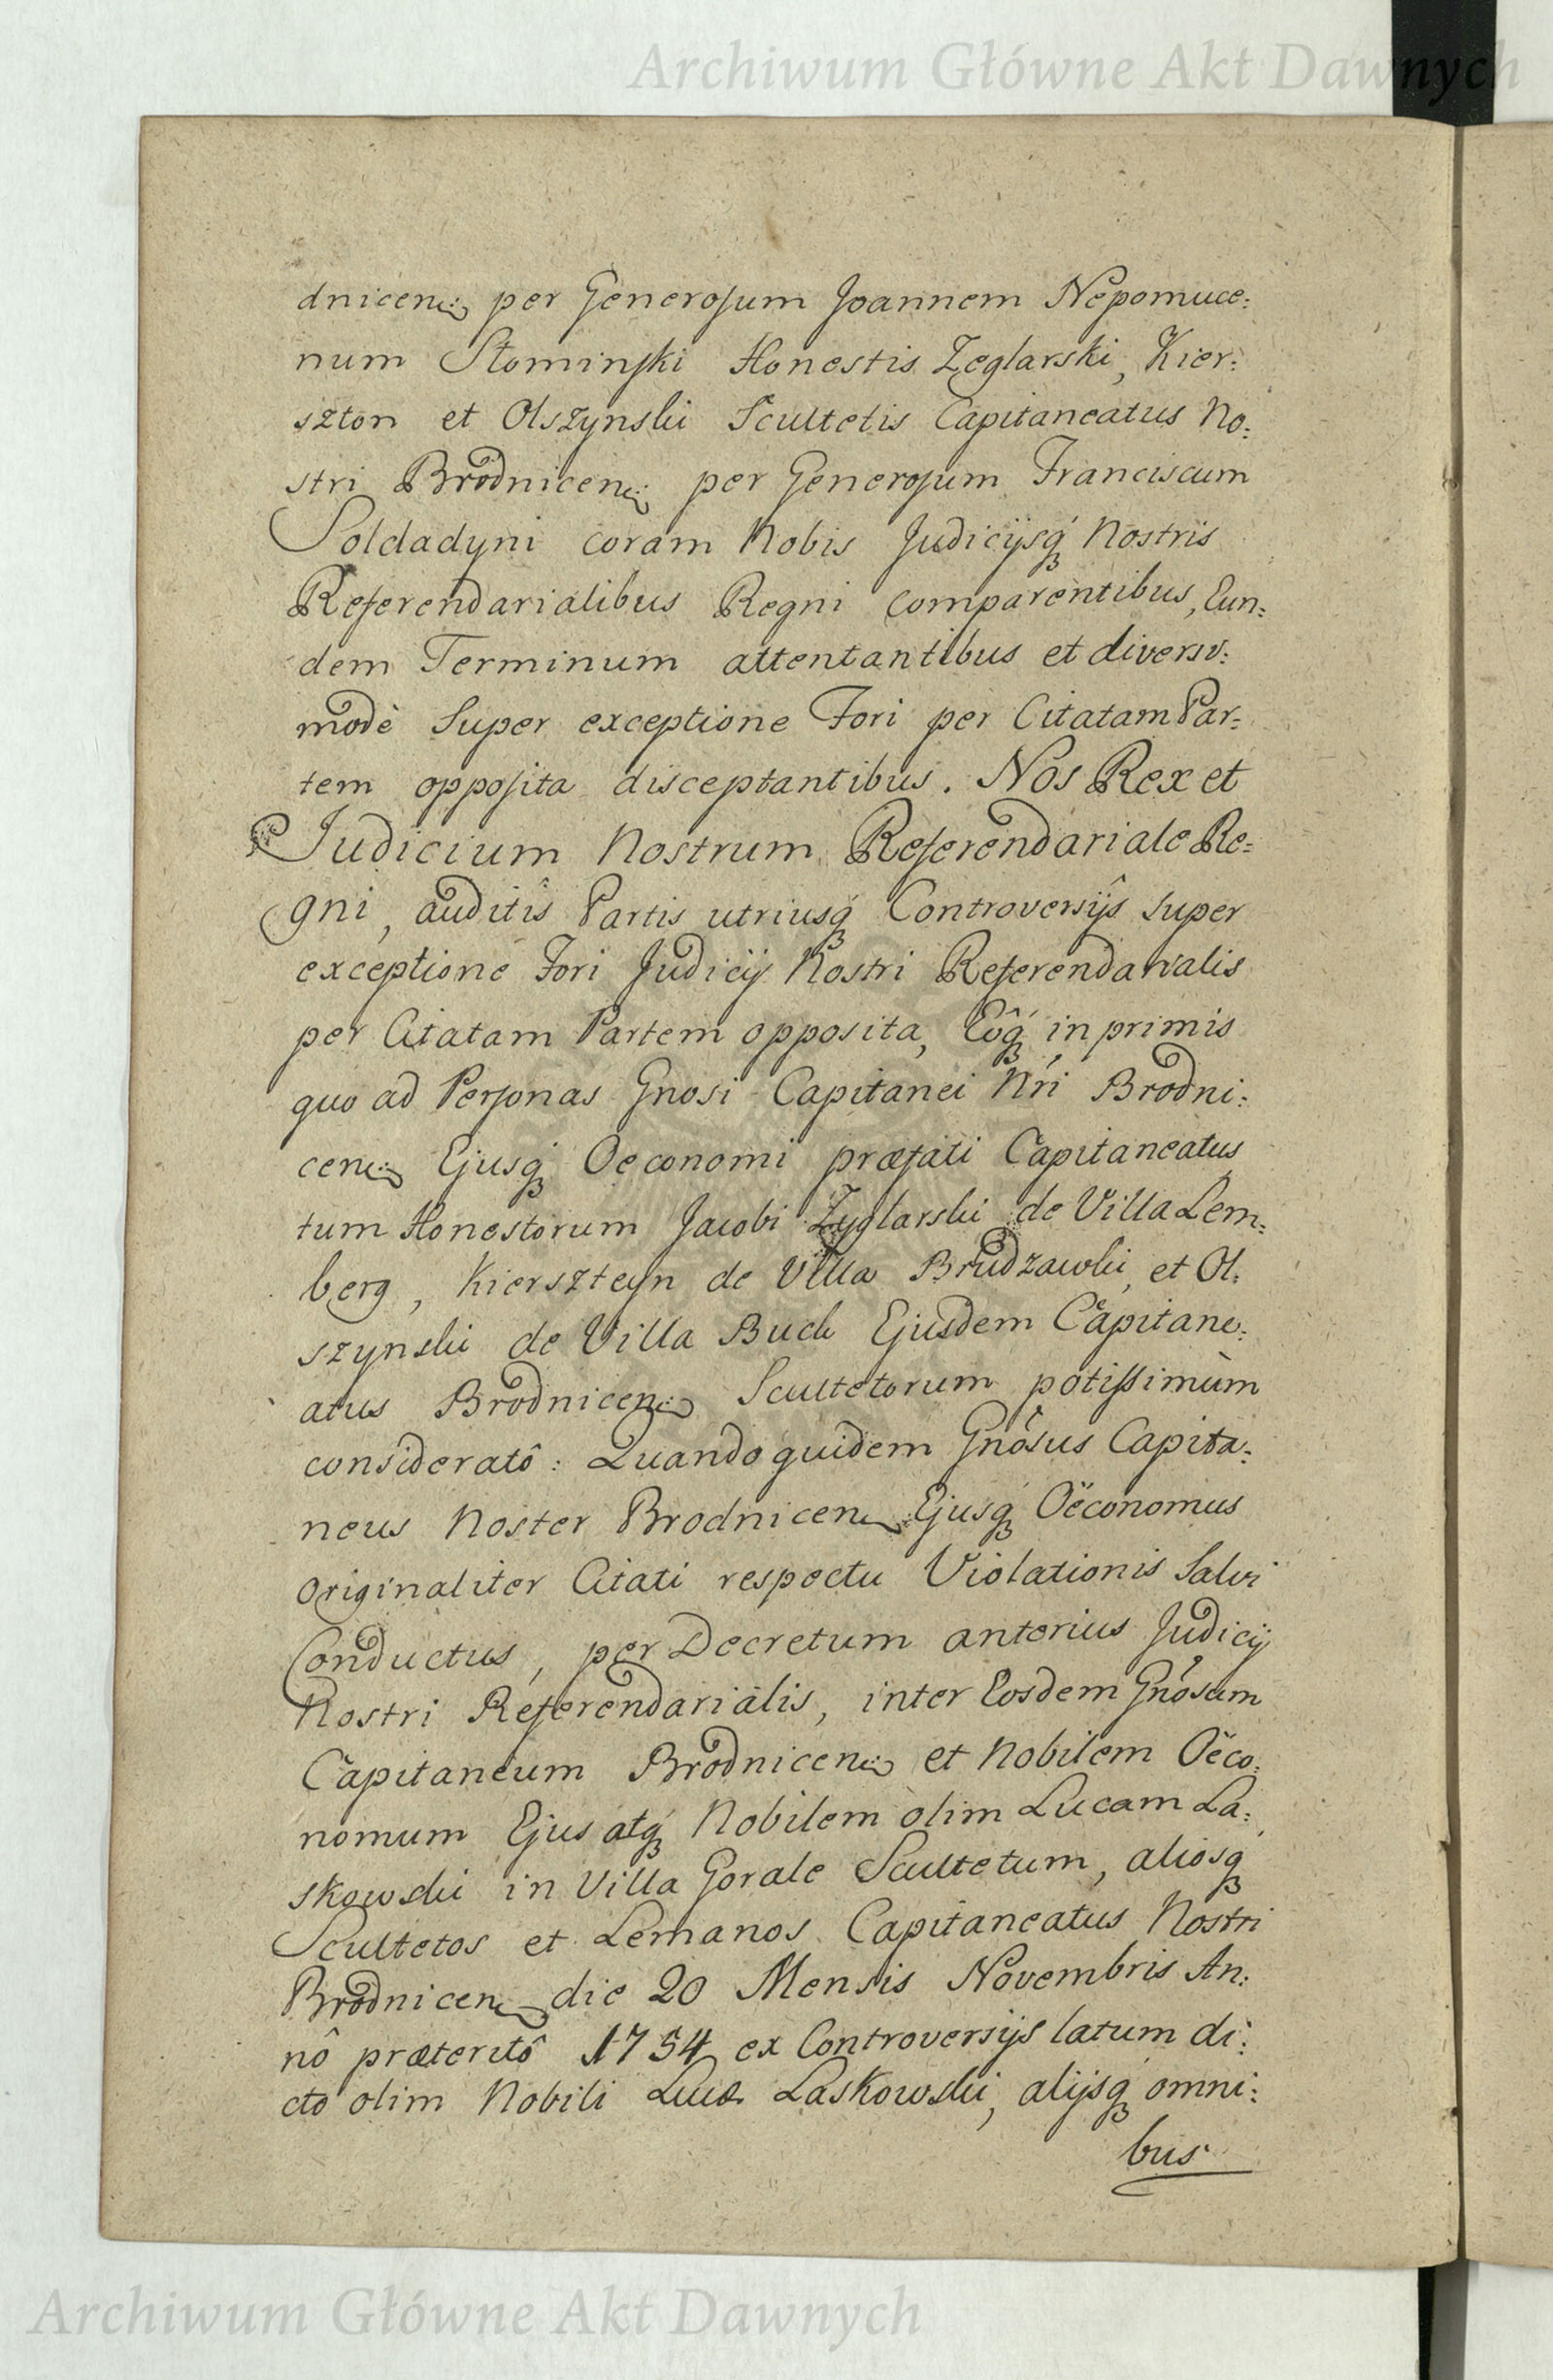 Archiwum Główne Akt Dawnych
dnicen: per Generosum Joannem Nepomuce:
num Słominski Honestis Zeglarski, Kier:
szton et Olszynski Scultetis Capitaneatus No:
stri Brodnicen: per Generosum Franciscum
Soldadyni coram Nobis Judicijsq́ Nostris
Referendarialibus Regni comparentibus, Eun:
dem Terminum attentantibus et diverso:
modè super exceptione Fori per Citatam Par:
tem opposita disceptantibus. Nos Rex et
Judicium Nostrum Referendariale Re:
gni, auditîs Partis utriusq́ Controversijs super
exceptione Fori Judicij Nostri Referendarialis
per Citatam Partem opposita, Eôq́ inprimis
quo ad Personas Gnosi Capitanei Nri Brodni:
cen: Ejusq́ Oeconomi præfati Capitaneatus
tum Honestorum Jacobi Zyglarski de Villa Lem:
berg, Kierszteyn de Villa Brudzawki, et Ol:
szynski de Villa Buck Ejusdem Capitane:
atus Brodnicen: Scultetorum potissimùm
consideratô: Quandoquidem Gnosus Capita:
neus Noster Brodnicen: Ejusq́ Oëconomus
originaliter Citati respectu Violationis Salvi
Conductus, per Decretum anterius Judicij
Nostri Referendarialis, inter Eosdem Gnosum
Capitaneum Brodnicen: et Nobilem Oëco:
nomum Ejus atq́ Nobilem olim Lucam La:
skowski in Villa Gorale Scultetum, aliosq́
Scultetos et Lemanos Capitaneatus Nostri
Brodnicen: die 20 Mensis Novembris An:
nô præteritô 1754 ex Controversijs latum di:
cto olim Nobili Lucæ Laskowski, alijsq́ omni:
bus
Archiwum Główne Akt Dawnych